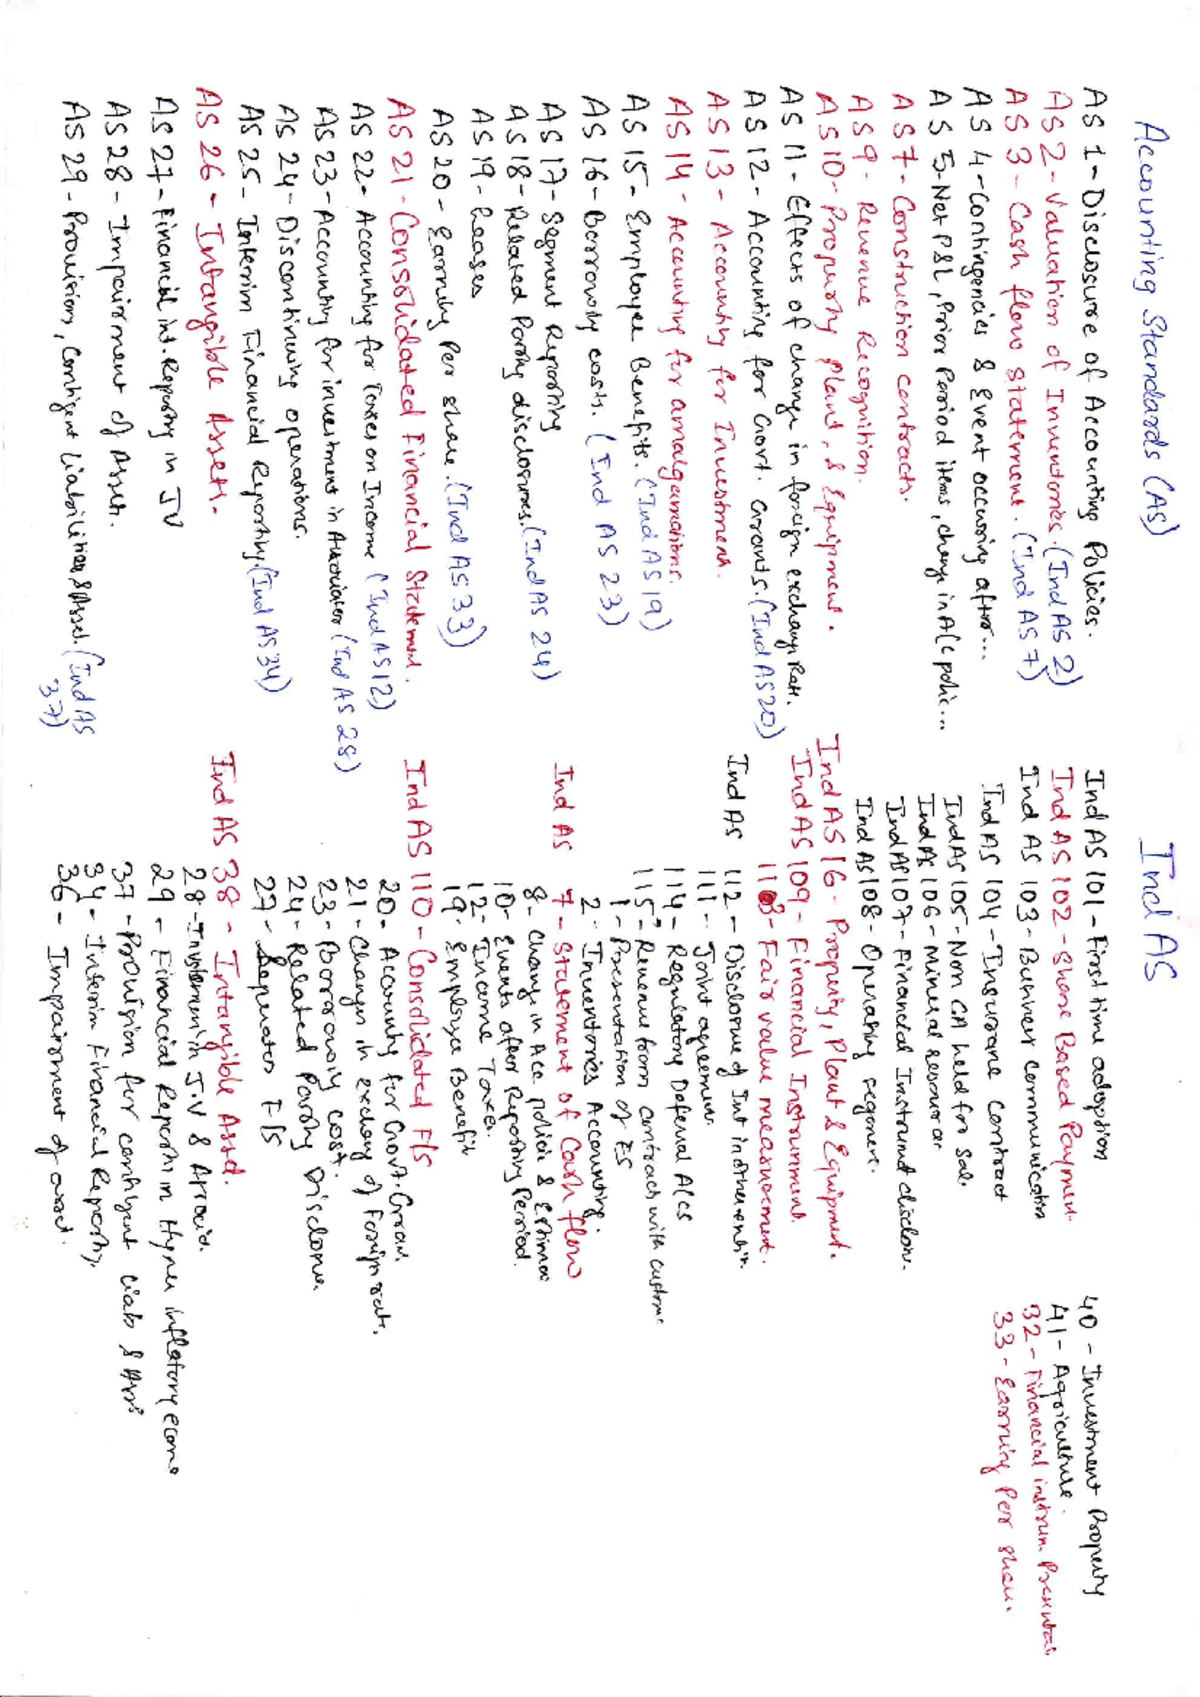 Accounting Standards (AS)
AS 1 - Disclosure of Accounting Policies.
AS 2 - Valuation of Inventories. (Ind AS 2)
AS 3 - Cash flow statement. (Ind AS 7)
AS 4 - Contingencies & Event occuring after...
AS 5 - Net P&L, Prior Period items, change in A/c polic...
AS 7 - Construction contracts.
AS 9 - Revenue Recognition.
AS 10 - Property plant, & Equipment.
AS 11 - Effects of change in foreign exchange Rate.
AS 12 - Accounting for Govt. Grants. (Ind AS20)
AS 13 - Accounting for Investment.
AS 14 - Accounting for amalgamations.
AS 15 - Employee Benefits. (Ind AS 19)
AS 16 - Borrowing costs. (Ind AS 23)
AS 17 - Segment Reporting
AS 18 - Related Party disclosures. (Ind AS 24)
AS 19 - Leases
AS 20 - Earning Per share. (Ind AS 33)
AS 21 - Consolidated Financial Statement.
AS 22 - Accounting for Taxes on Income (Ind AS 12)
AS 23 - Accounting for investment in Associates (Ind AS 28)
AS 24 - Discontinuing operations.
AS 25 - Interim Financial Reporting. (Ind AS 34)
AS 26 - Intangible Assets.
AS 27 - Financial int. Reporting in JV
AS 28 - Impairment of Asset.
AS 29 - Provisions, Contigent Liabilities & Asset. (Ind AS
37)
Ind AS
Ind AS 101 - First time adoption
Ind AS 102 - Share Based Payment.
Ind AS 103 - Business
Ind AS 104 - Insurance contract
Ind AS 105 - Non CA held for Sale.
Ind AS 106 - Mineral
Ind AS 107 - Financial Instrument disclose.
Ind AS 108 - Operating
Ind AS 16 - Property, Plant & Equipment.
Ind AS 109 - Financial Instrument.
113 - Fair value
Ind AS 112 - Disclosure of Int in other
111 - Joint agreement.
114 - Regulatory Deferral A/cs
115 - Revenue form contracts with custom
1 - Presentation of FS
2 - Inventories Accounting.
Ind AS 7 - Statement of Cash flow
8 - Change in Acc
10 - Events after Reporting Period.
12 - Income Taxes.
19 - Employee Benefit
Ind AS 110 - Consolidated F/s
20 - Accounting for Govt. Grant.
21 - Changes in exchang of Foreign rate.
23 - Borrowing cost.
24 - Related Party Disclosure
27 - F/s
Ind AS 38 - Intangible Asset.
28 - in J.V &
29 - Financial Report in Hyper inflatory econo
37 - Provision for contigent liab & Ass
34 - Interim Financial Reporting.
36 - Impairment of asset.
40 - Investment Property
41 - Agriculture.
32 - Financial instrum
33 - Earning Per share.